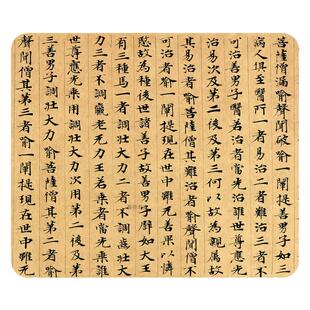 菩薩僧漏喻聲聞破喻一闡提善男子如三
病人俱至醫所一者易治二者難治三者不
可治善男子醫若治者當先治誰世尊應先
治易次及第二後及第三何以故為親屬故
其易治者喻菩薩僧其難治者喻聲聞僧不
可治者喻一闡提現在世中雖无善果以憐
愍故為種後世諸善子故善男子譬如大王
有三種馬一者調壯大力二者不調齒壯大
力三者不調羸老无力王若乘者當先乘誰
世尊應先乘用調壯大力次用第二後及第
三善男子調壯大力喻菩薩僧其第二者喻
聲聞僧其第三者喻一闡提現在世中雖无